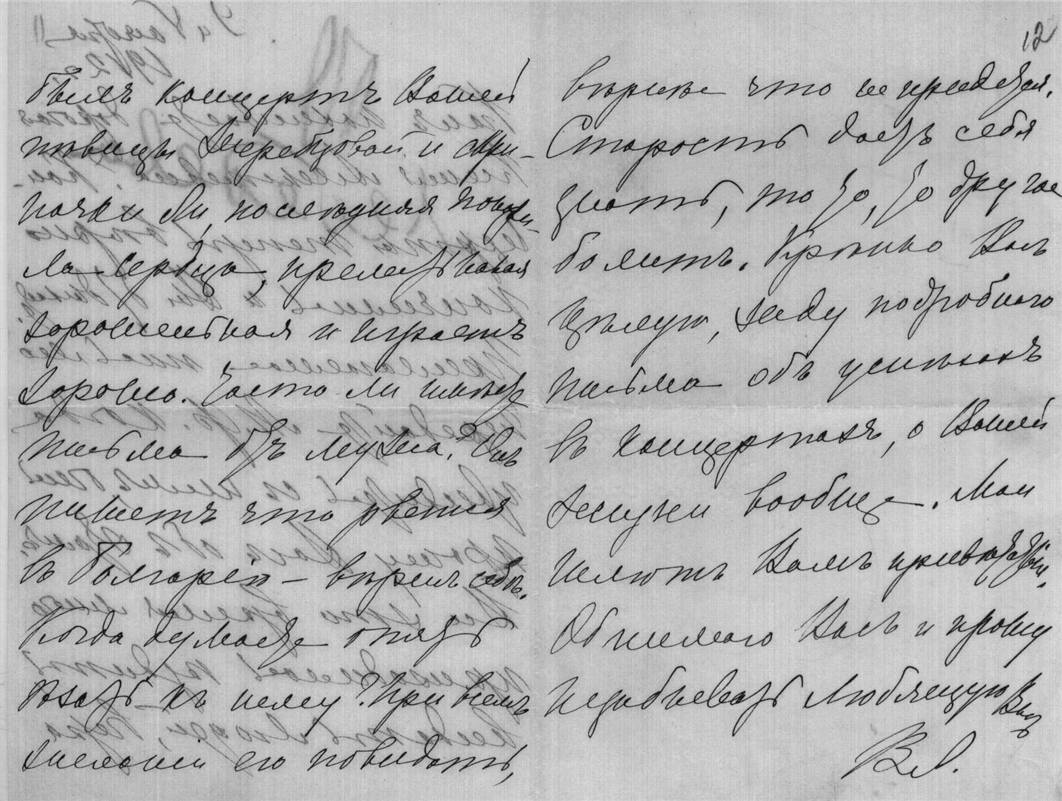 12
былъ концертъ Вашей
певицы Теребцовой и Ми-
начки Ли, последняя поко-
ла сердца, прелестная
хорошенькая и играетъ
хорошо. Часто ли имеете
письма отъ мужа? Онъ
пишетъ что рвется
въ Болгарію —
Когда думаете опять
ехать къ нему? При всемъ
желаніи его повидать,
верно что не придется.
Старость даетъ себя
знать, то то, то другое
болитъ. Крепко Васъ
целую, жду подробнаго
письма объ успехахъ
въ концертахъ, о Вашей
жизни вообще. Мои
шлютъ Вамъ приветы.
Обнимаю Васъ и прошу
не забывать любящую Васъ
В. Л.